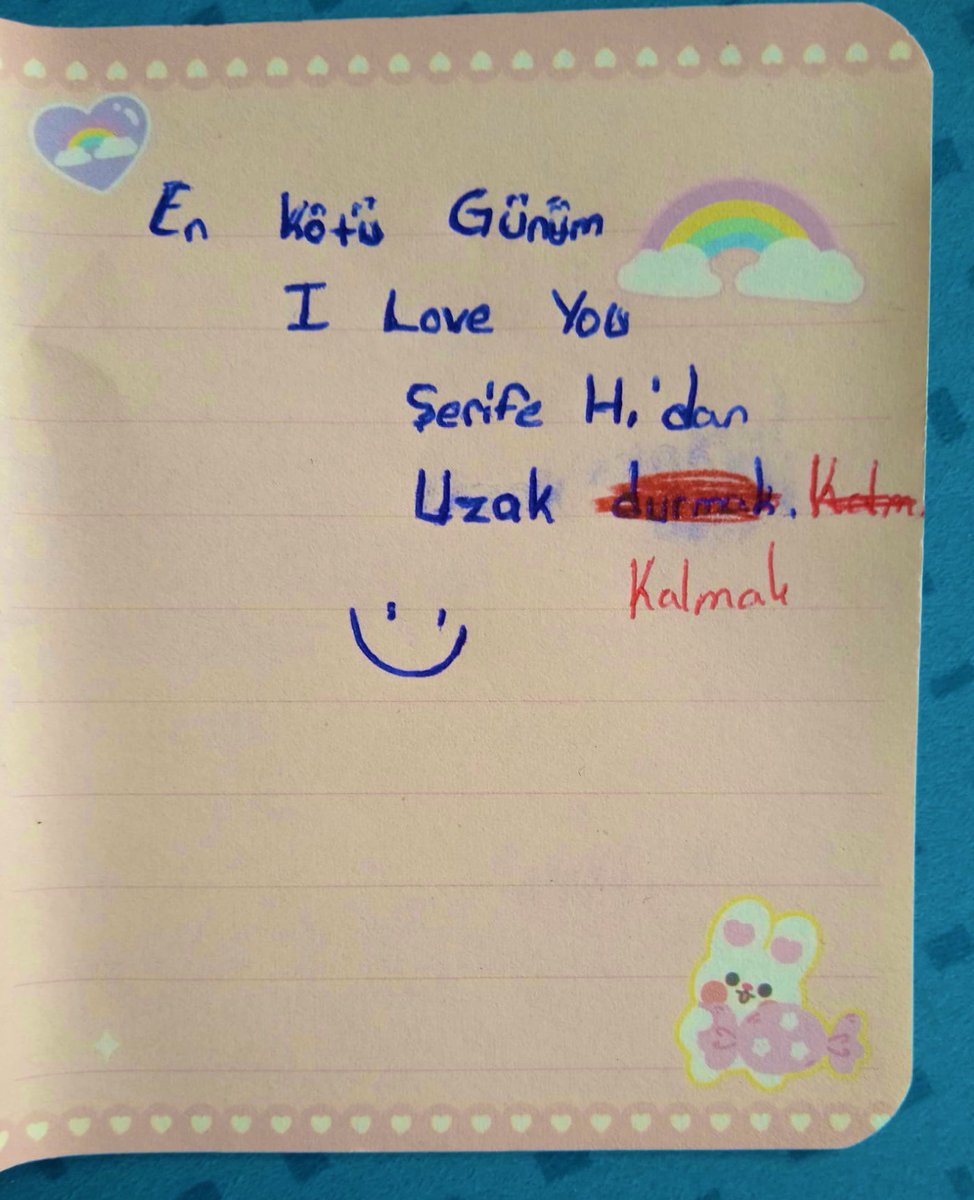 En Kötü Günüm
I Love You
Şerife H.'dan
Uzak durmak. Kalm.
Kalmak